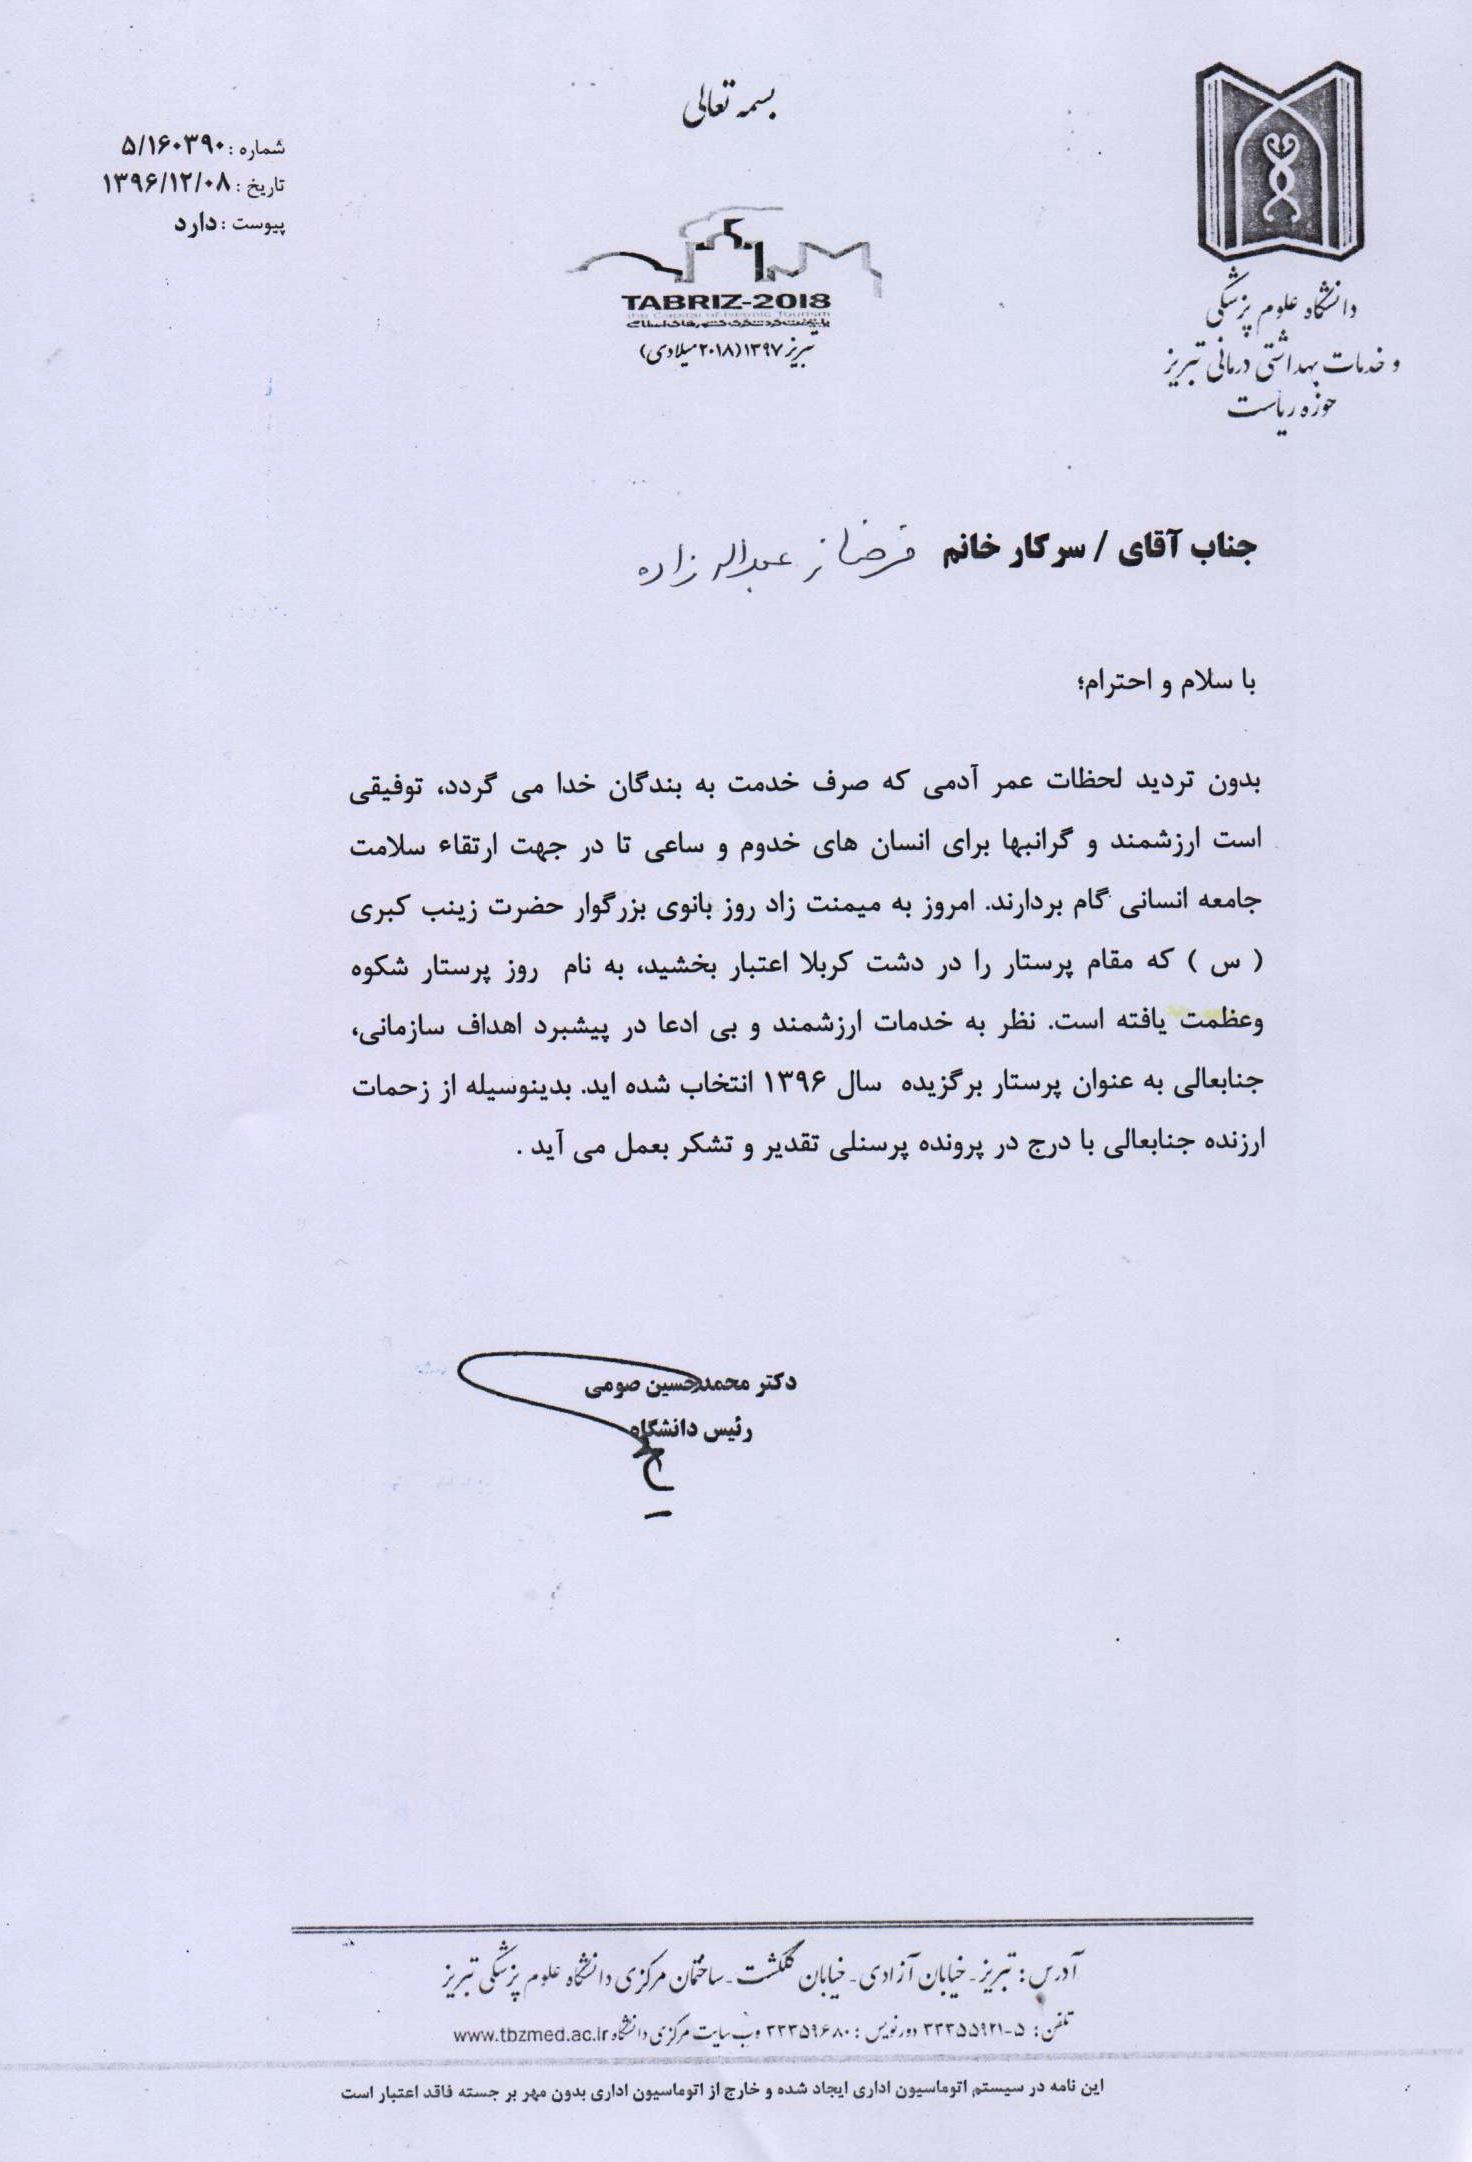 بسمه تعالی
شماره : ۵/۱۶۰۳۹۰
تاریخ : ۱۳۹۶/۱۲/۰۸
پیوست : دارد
TABRIZ-2018
the Capital of Islamic Tourism
پایتخت گردشگری کشورهای اسلامی
تبریز ۱۳۹۷(۲۰۱۸ میلادی)
دانشگاه علوم پزشکی
و خدمات بهداشتی درمانی تبریز
حوزه ریاست
جناب آقای / سرکار خانم عبداله زاده
با سلام و احترام؛
بدون تردید لحظات عمر آدمی که صرف خدمت به بندگان خدا می گردد، توفیقی
است ارزشمند و گرانبها برای انسان های خدوم و ساعی تا در جهت ارتقاء سلامت
جامعه انسانی گام بردارند. امروز به میمنت زاد روز بانوی بزرگوار حضرت زینب کبری
( س ) که مقام پرستار را در دشت کربلا اعتبار بخشید، به نام روز پرستار شکوه
وعظمت یافته است. نظر به خدمات ارزشمند و بی ادعا در پیشبرد اهداف سازمانی،
جنابعالی به عنوان پرستار برگزیده سال ۱۳۹۶ انتخاب شده اید. بدینوسیله از زحمات
ارزنده جنابعالی با درج در پرونده پرسنلی تقدیر و تشکر بعمل می آید .
دکتر محمدحسین صومی
رئیس دانشگاه
آدرس: تبریز- خیابان آزادی- خیابان گلگشت -ساختمان مرکزی دانشگاه علوم پزشکی تبریز
تلفن: ۵-۳۳۳۵۵۹۲۱ دورنویس : ۳۳۳۵۹۶۸۰ وب سایت مرکزی دانشگاه www.tbzmed.ac.ir
این نامه در سیستم اتوماسیون اداری ایجاد شده و خارج از اتوماسیون اداری بدون مهر بر جسته فاقد اعتبار است